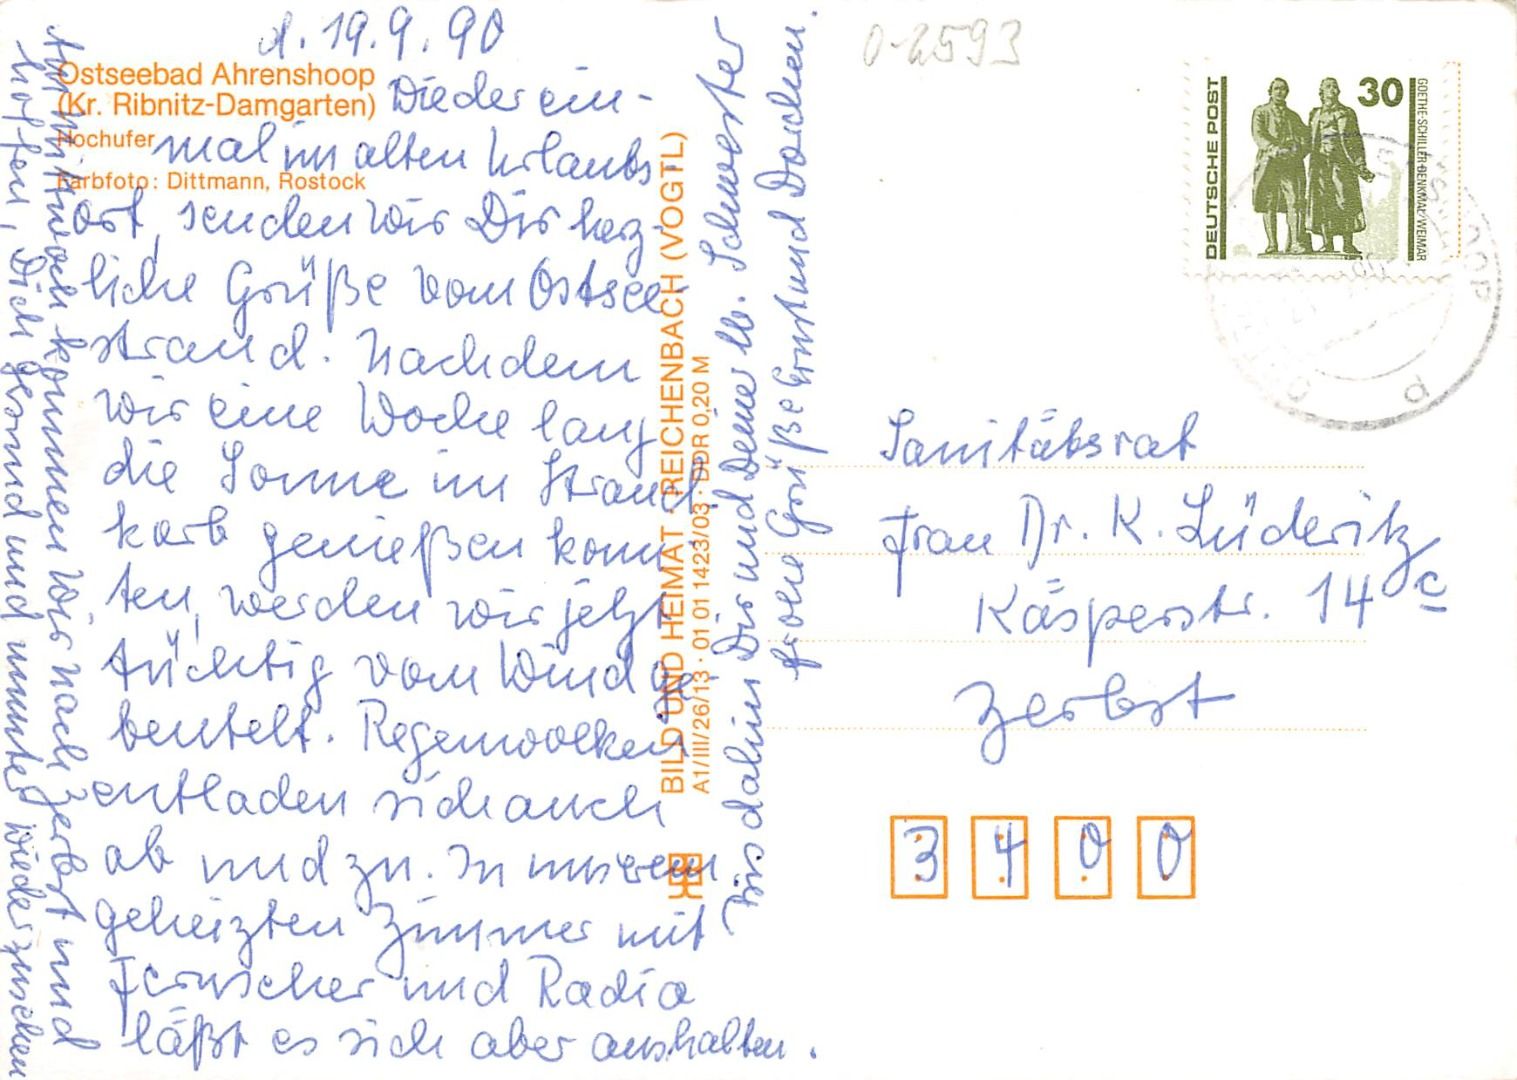 d. 19.9.90
Ostseebad Ahrenshoop
(Kr. Ribnitz-Damgarten)
Hochufer
Farbfoto: Dittmann, Rostock
Wieder ein-
mal im alten Urlaubs-
ort, senden wir Dir herz-
liche Grüße vom Ostsee-
strand. Nachdem
wir eine Woche lang
die Sonne im Strand-
korb genießen konn
ten, werden wir jetzt
tüchtig vom Wind ge-
beutelt. Regenwolken
entladen sich auch
ab und zu. In unserem
geheizten Zimmer mit
Fernseher und Radio
läßt es sich aber aushalten.
Am Mittwoch kommen wir nach Zerbst und
hoffen, Dich gesund und munter wiederzusehen
Bis dahin Dir und Deiner lb. Schwester
frohe Grüße Ernst und Dorchen.
BILD UND HEIMAT · REICHENBACH (VOGTL)
A1/III/26/13 · 01 01 1423/03 · DDR 0,20 M
0-2593
DEUTSCHE POST
30
GOETHE-SCHILLER-DENKMAL/WEIMAR
Sanitätsrat
Frau Dr. K. Lüderitz
Käsperstr. 14 c
Zerbst
3400